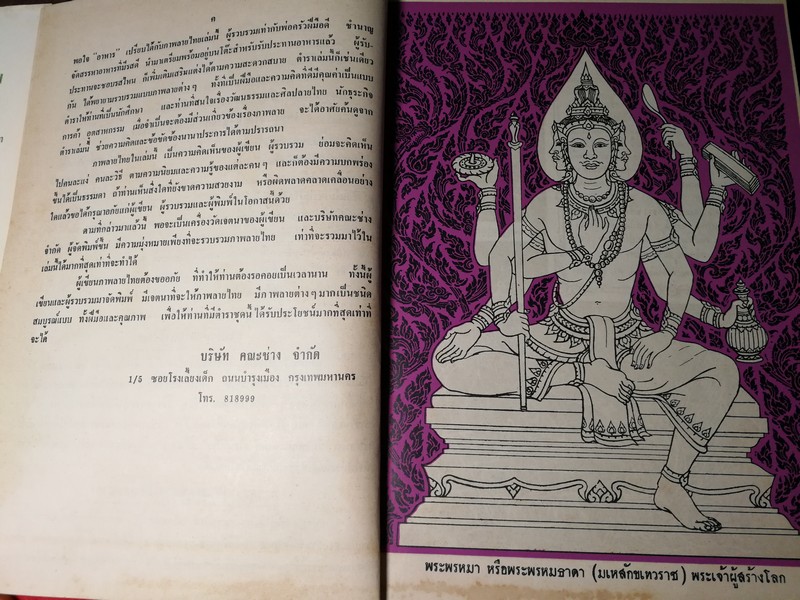 ๓
พอใจ "อาหาร" เปรียบได้กับภาพลายไทยเล่มนี้ ผู้รวบรวมเท่ากับพ่อครัวฝีมือดี ชำนาญ
จัดสรรหาอาหารที่มีรสดี นำมาเตรียมพร้อมอยู่บนโต๊ะสำหรับรับประทานอาหารแล้ว ผู้รับ-
ประทานจะชอบรสไหน ก็เพิ่มเติมเสริมแต่งได้ตามความสะดวกสบาย ตำราเล่มนี้ก็เช่นเดียว
กัน ได้พยายามรวบรวมแบบภาพลายต่างๆ ทั้งที่เป็นฝีมือและความคิดที่ดีมีคุณค่าเป็นแบบ
ตำราให้ท่านที่เป็นนักศึกษา และท่านที่สนใจเรื่องวัฒนธรรมและศิลปลายไทย นักธุระกิจ
การค้า อุตสาหกรรม เมื่อจำเป็นจะต้องมีส่วนเกี่ยวข้องเรื่องภาพลาย จะได้อาศัยค้นดูจาก
ตำราเล่มนี้ ช่วยความคิดและข้อขัดข้องนานาประการได้ตามปรารถนา
ภาพลายไทยในเล่มนี้ เป็นความคิดเห็นของผู้เขียน ผู้รวบรวม ย่อมจะคิดเห็น
ไปคนละแง่ คนละวิธี ตามความนิยมและความรู้ของแต่ละคนๆ และก็ต้องมีความบกพร่อง
ขึ้นได้เป็นธรรมดา ถ้าท่านเห็นสิ่งใดที่ยังขาดความสวยงาม หรือผิดพลาดคลาดเคลื่อนอย่าง
ใดแล้วขอได้กรุณาอภัยแก่ผู้เขียน ผู้รวบรวมและผู้พิมพ์ในโอกาสนี้ด้วย
ตามที่กล่าวมาแล้วนี้ พอจะเป็นเครื่องวัดเจตนาของผู้เขียน และบริษัทคณะช่าง
จำกัด ผู้จัดพิมพ์ขึ้น มีความมุ่งหมายเพียงที่จะรวบรวมภาพลายไทย เท่าที่จะรวมมาไว้ใน
เล่มนี้ได้มากที่สุดเท่าที่จะทำได้
ผู้เขียนภาพลายไทยต้องขออภัย ที่ทำให้ท่านต้องรอคอยเป็นเวลานาน ทั้งนี้ผู้
เขียนและผู้รวบรวมมาจัดพิมพ์ มีเจตนาที่จะให้ภาพลายไทย มีภาพลายต่างๆมากเป็นชนิด
สมบูรณ์แบบ ทั้งฝีมือและคุณภาพ เพื่อให้ท่านที่มีตำราชุดนี้ ได้รับประโยชน์มากที่สุดเท่าที่
จะได้
บริษัท คณะช่าง จำกัด
1/5 ซอยโรงเลี้ยงเด็ก ถนนบำรุงเมือง กรุงเทพมหานคร
โทร. 818999
พระพรหมา หรือพระพรหมธาดา (มเหสักขเทวราช) พระเจ้าผู้สร้างโลก